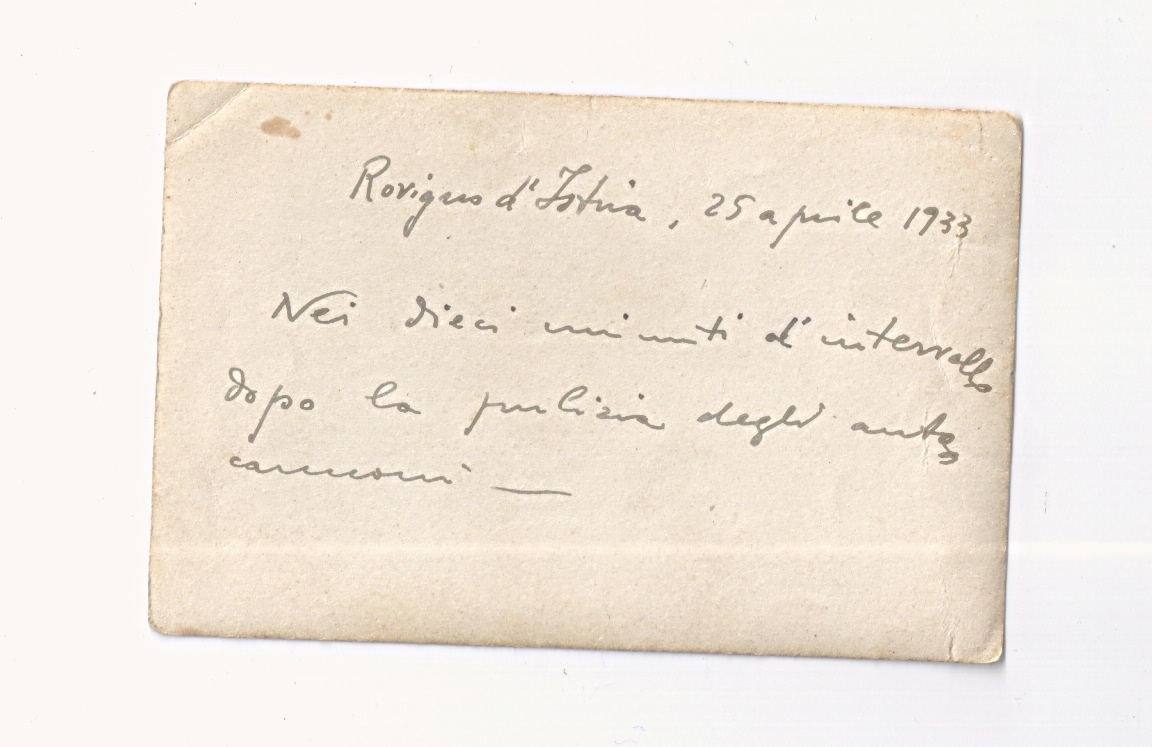 Rovigno d'Istria, 25 aprile 1933
Nei dieci minuti d'intervallo
dopo la pulizia degli auto
cannoni —